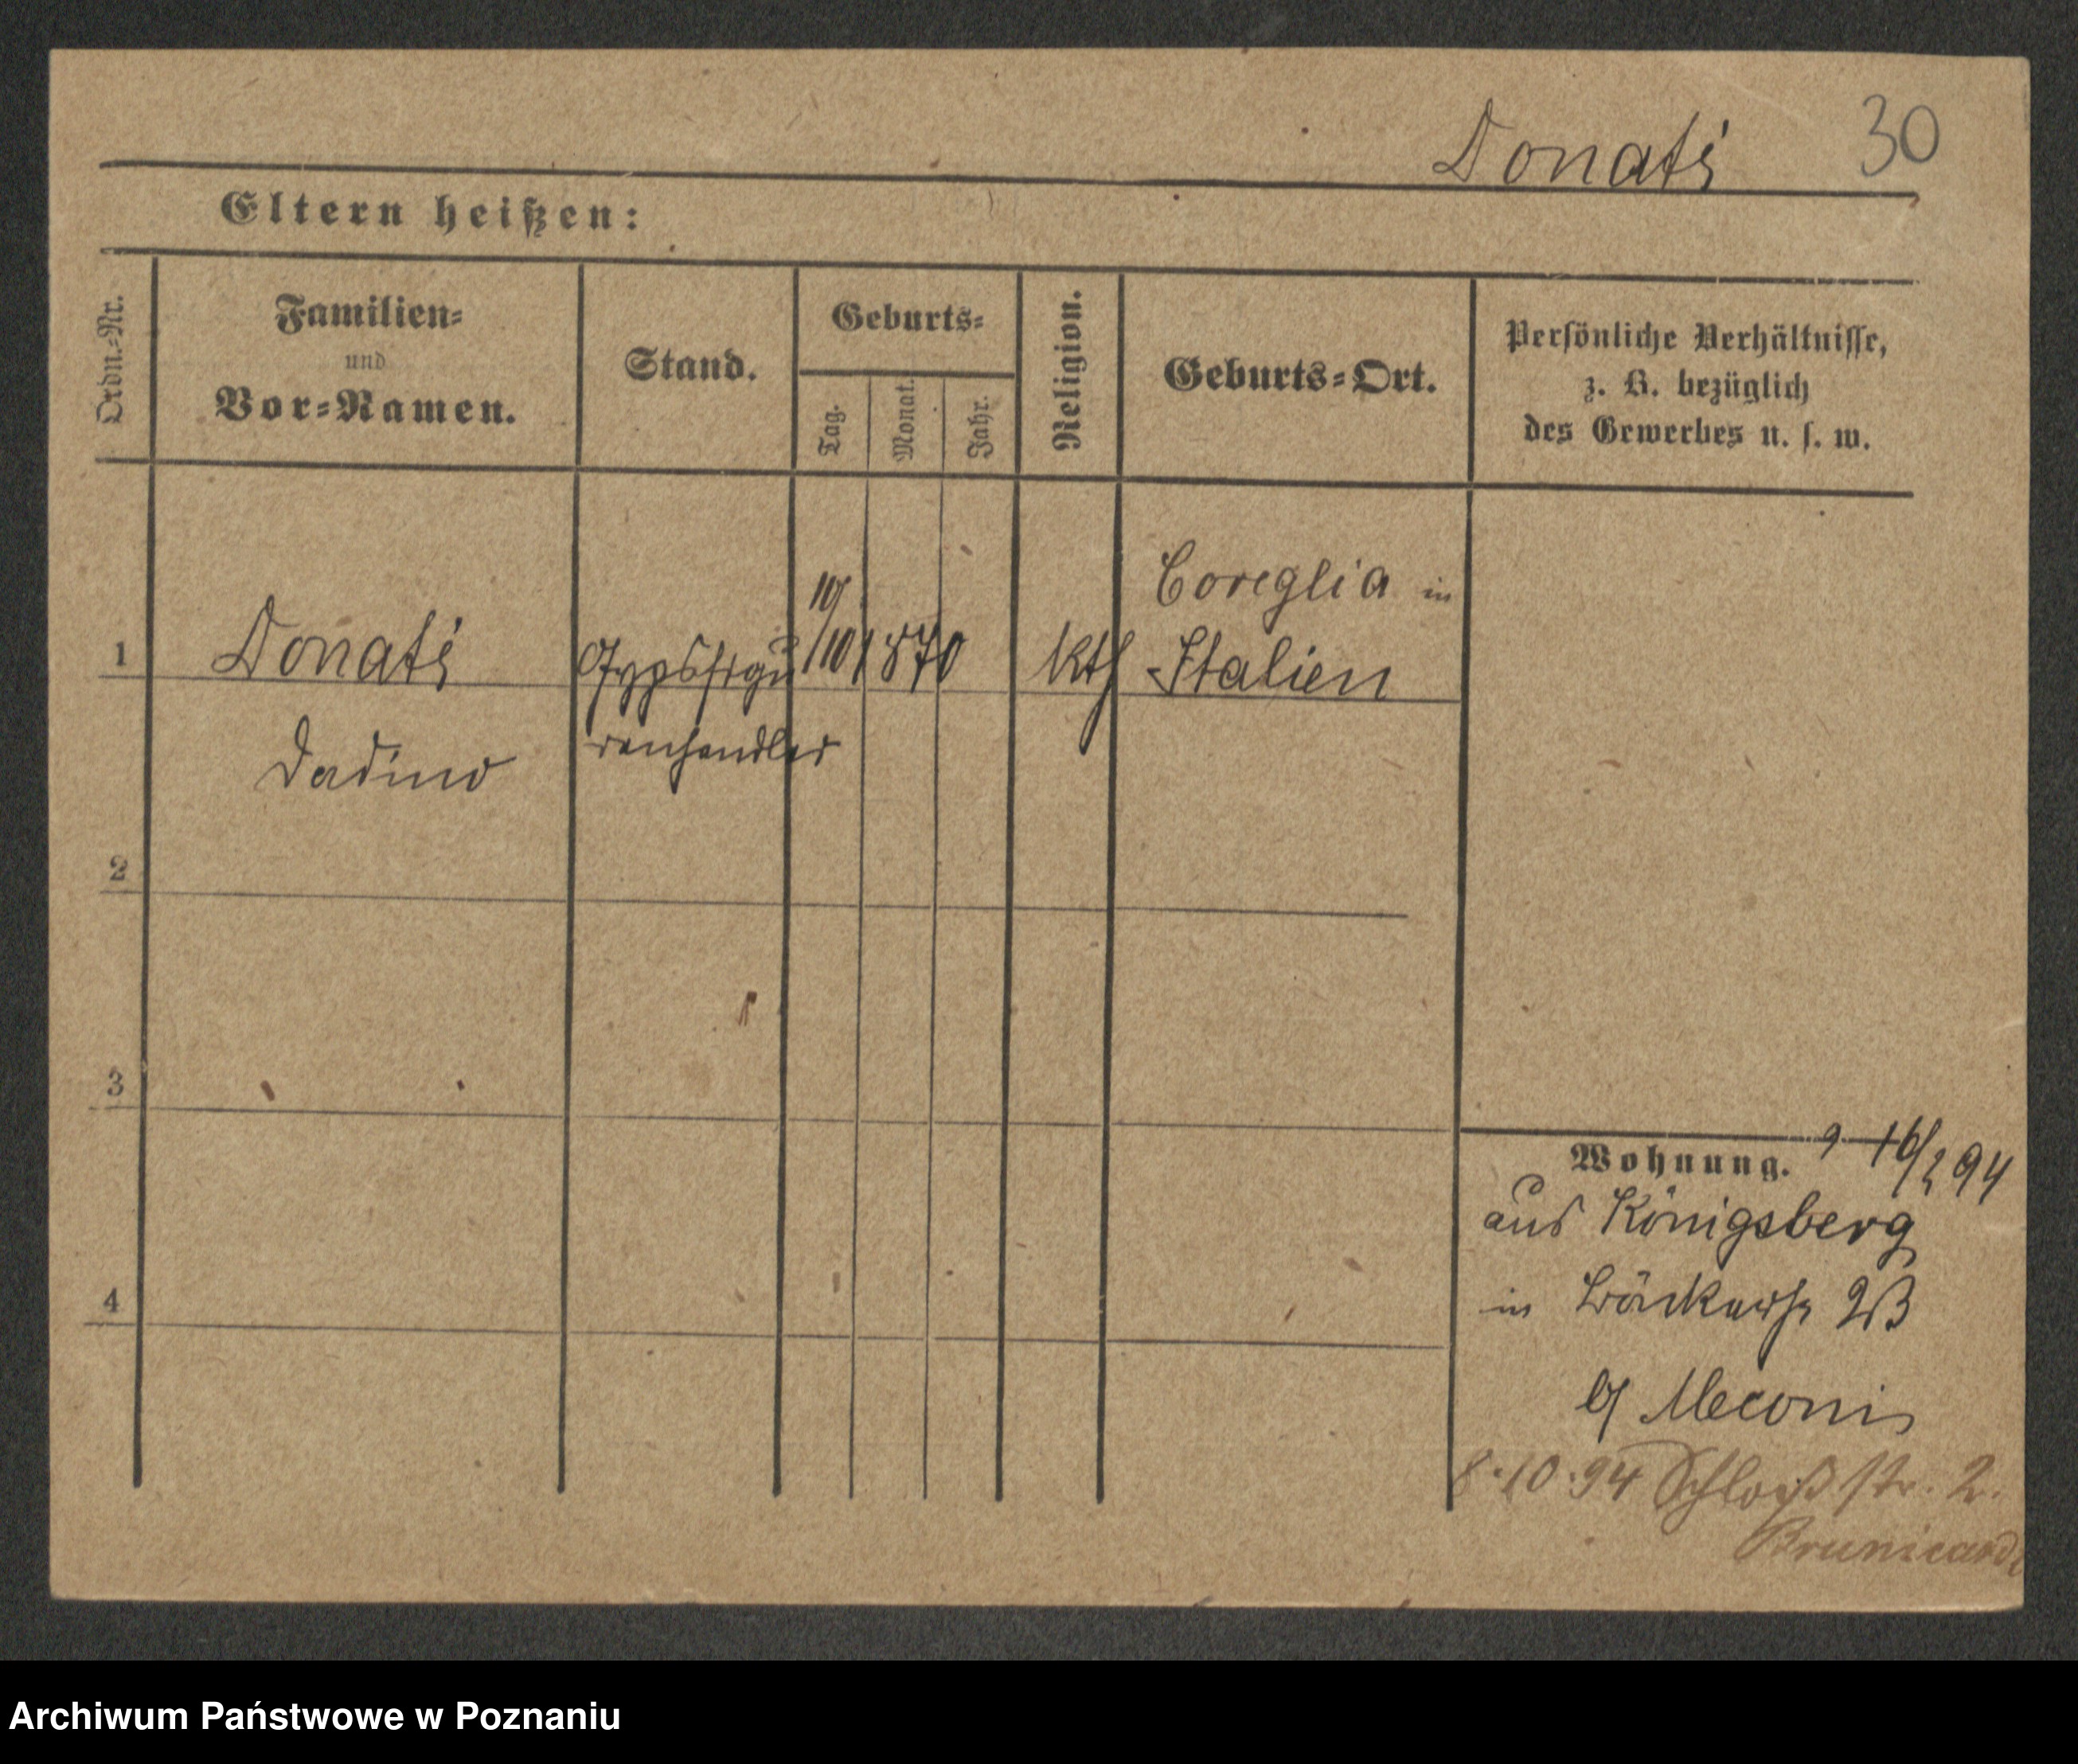 Donati 30
Eltern heißen:
Ordn.-Nr.
Familien-
und
Vor-Namen.
Stand.
Geburts-
Tag.
Monat.
Jahr.
Religion.
Geburts-Ort.
Persönliche Verhältnisse,
z. B. bezüglich
des Gewerbes u. s. w.
1 Donati Gypsfigu 10/10 1870 kth Coreglia in
Italien
Dadino renhandler
2
3
4
Wohnung. 94
aus Königsberg
in
Meconi
8.10.94 Schloß str. 2.
Brunicardi
Archiwum Państwowe w Poznaniu